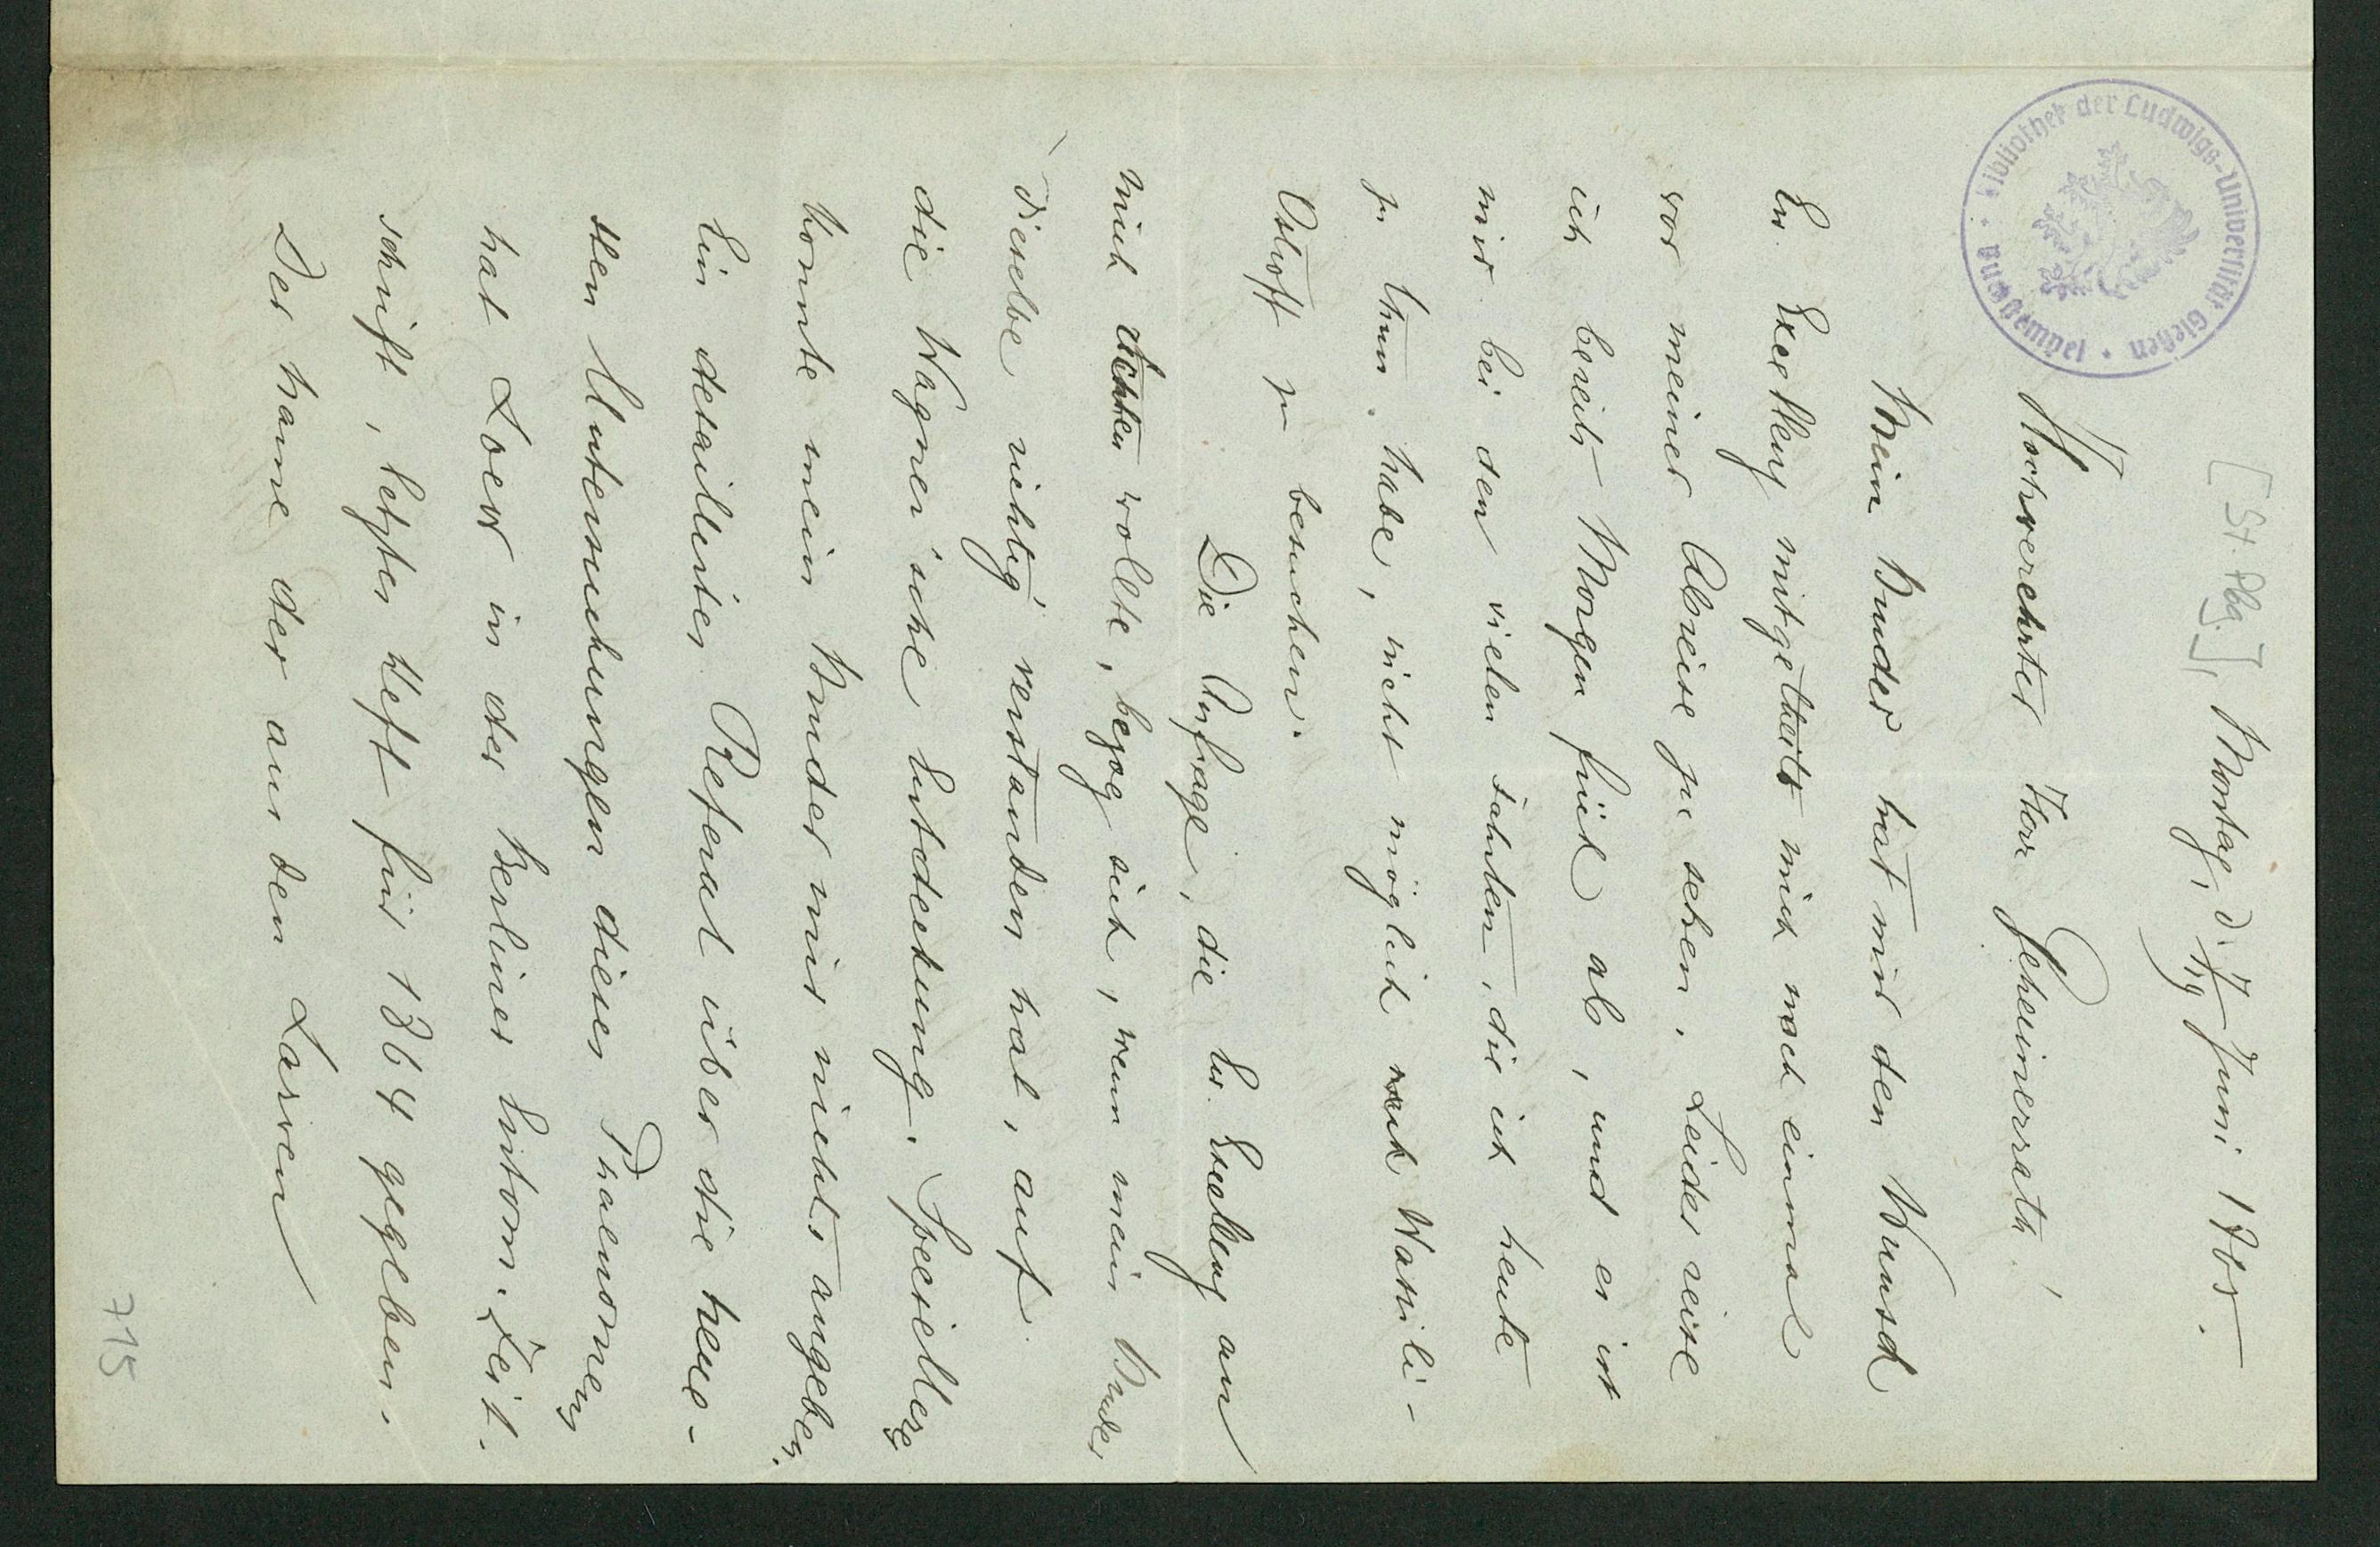 [St. Pbg.], Montag, d. 7/19 Juni 1865.
Hochverehrter Herr Geheimerrath!
Mein Bruder hat mir den Wunsch
Ew. Excelleny mitgetheilt mich noch einmal
vor meiner Abreise zu sehen. Leider reise
ich bereits Morgen früh ab, und es ist
mir bei den vielen Fahrten, die ich heute
zu thun habe, nicht möglich nach Wassili-
Ostroff zu besuchen.
Die Anfrage, die Ew. Excellenz an
mich richten wollte, bezog sich, wenn mein Bruder
dieselbe richtig verstanden hat, auf
die Wagner'sche Entdeckung. Speciellere
konnte mein Bruder mir nichts angeben.
Ein detaillirtes Referat über die neue-
sten Untersuchungen dieses Phaenomens
hat Loew in der Berliner Entom. Zeit-
schrift, letztes Heft für 1864 gegeben.
Der Name der aus den Larven
715
Bibliothek der Ludwigs-Universität Gießen · ausgestempelt